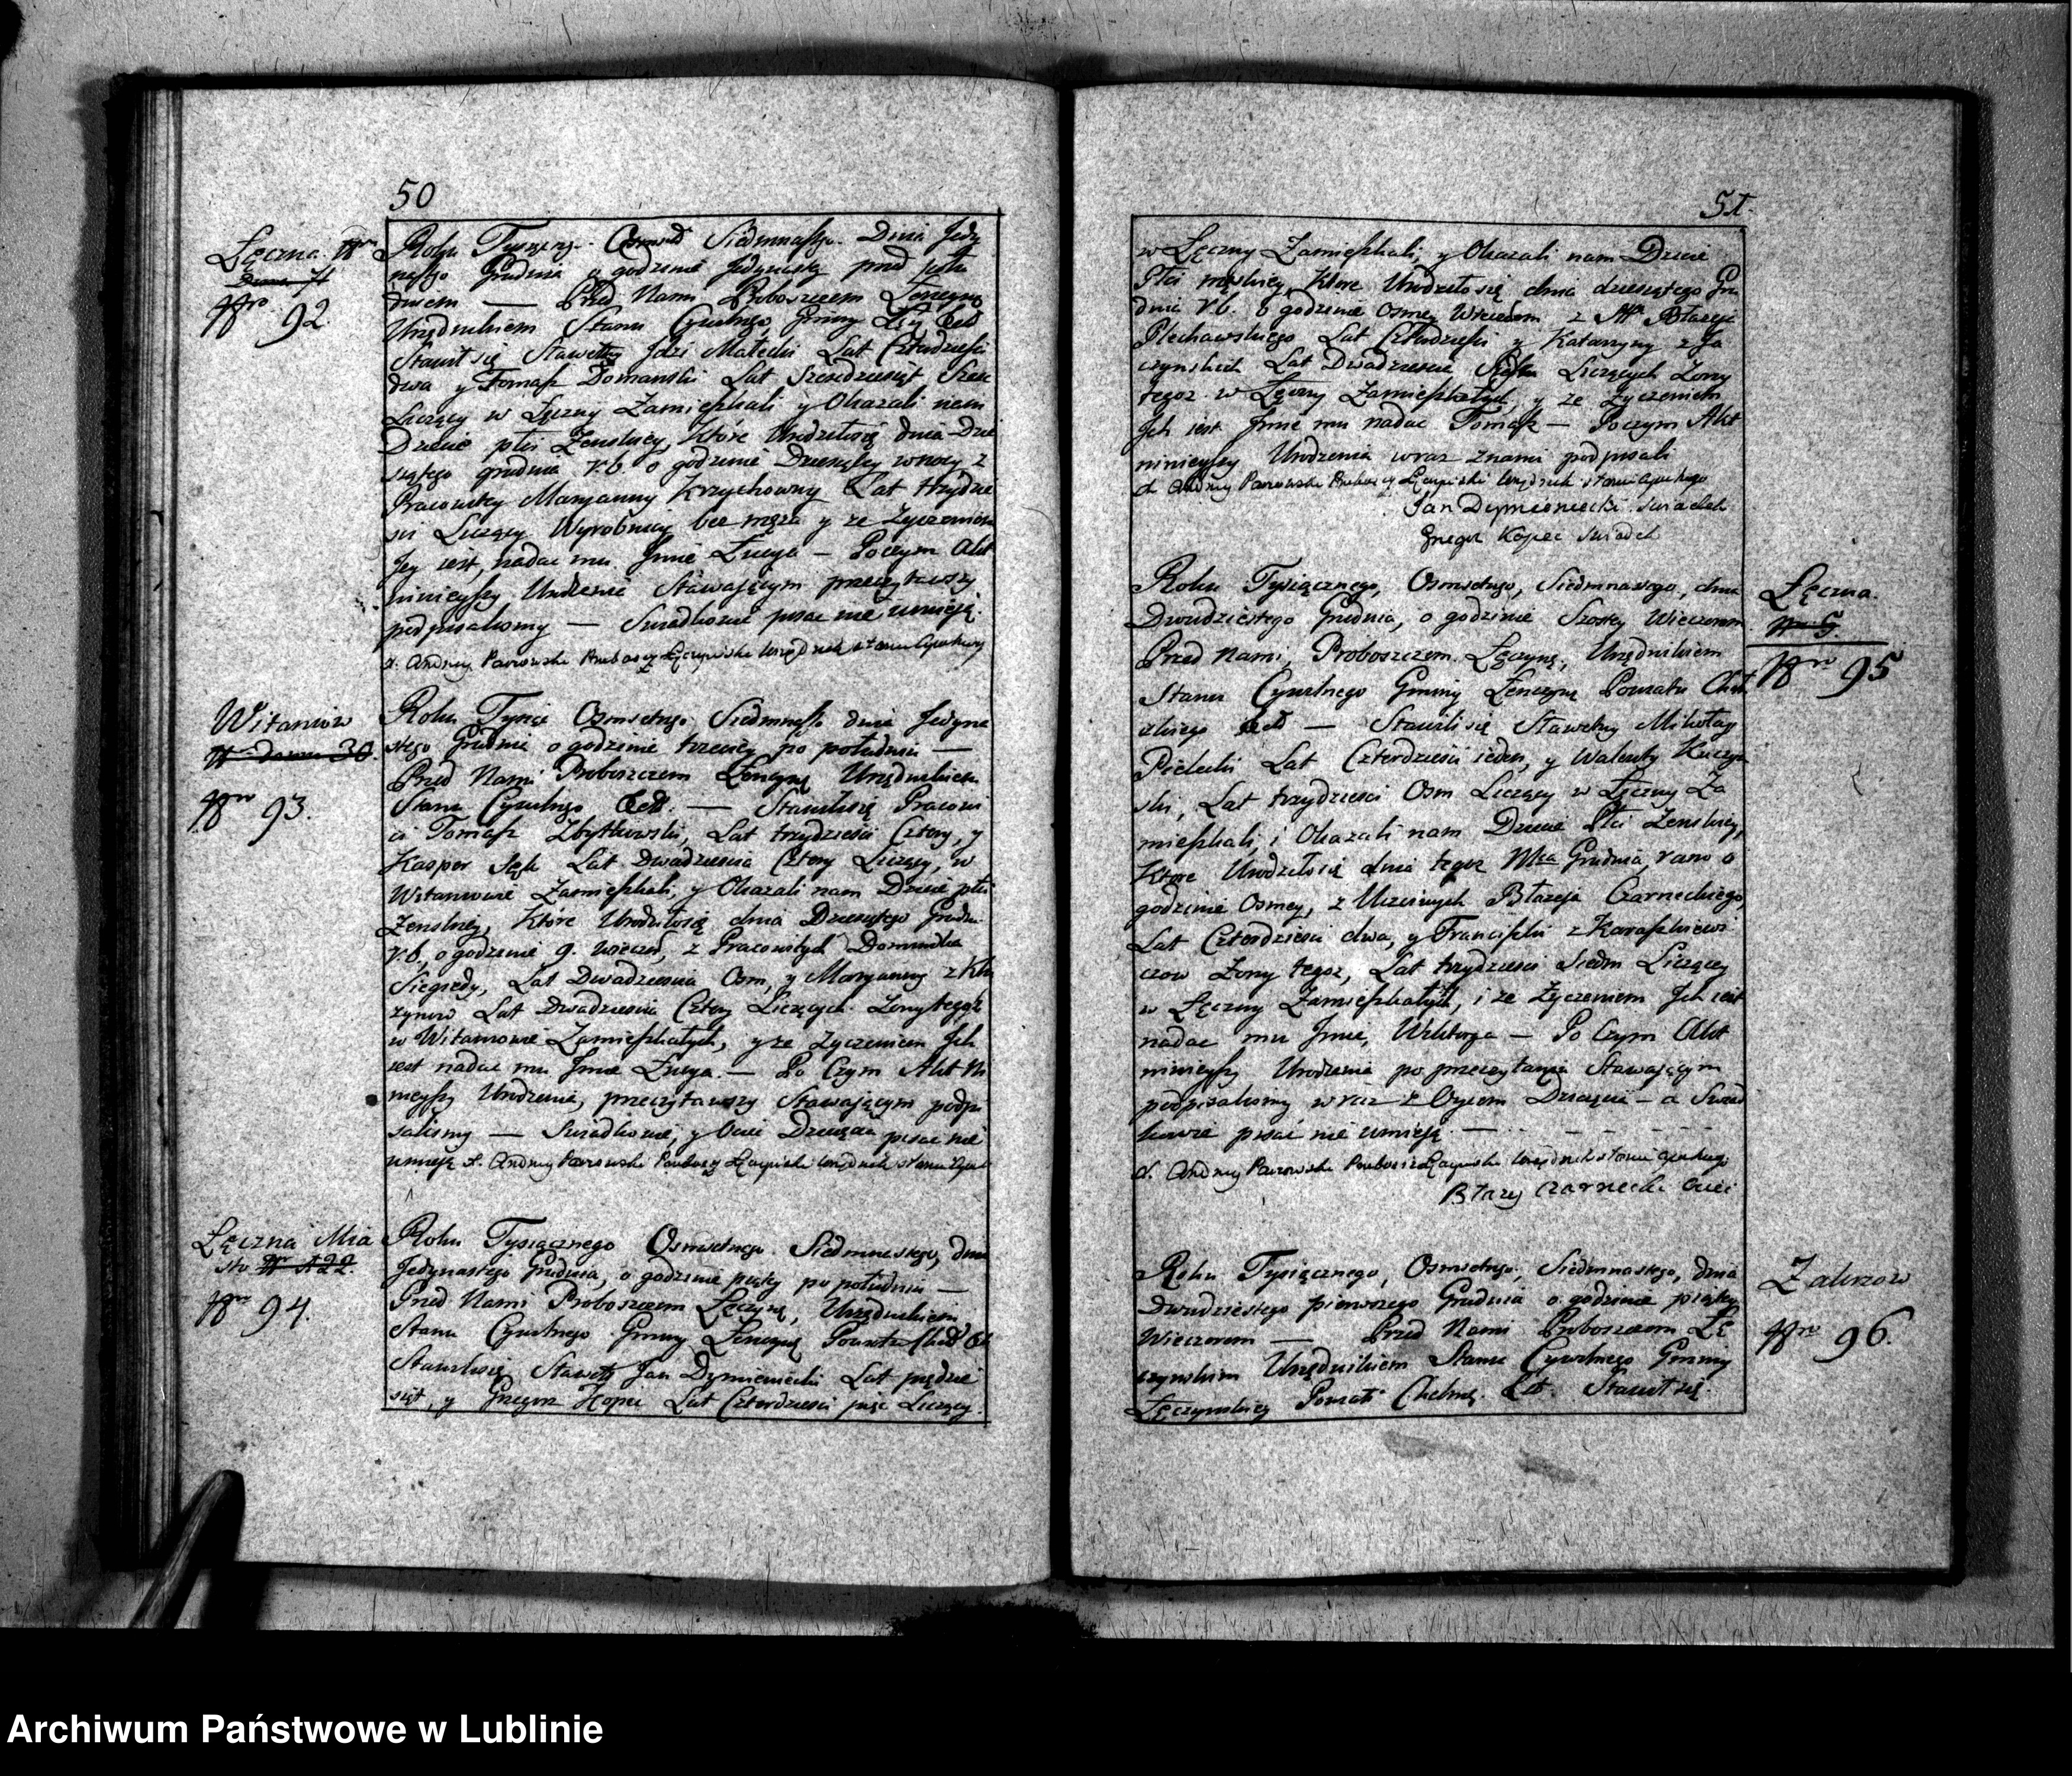 50
Łęczna Nro
Domu 71
Nro 92.
Roku Tysiącz. Osmset Siedmnastego. Dnia Jedy
nastego Grudnia o godzinie Jedynastey przed połu
dniem — Przed Nami Proboszczem Łenczyns
Urzędnikiem Stanu Cywilnego Gminy
Stawił się Sławetny Jdzi Małecki Lat Czterdzieści
dwa y Tomasz Domanski Lat Szesdziesiąt Szesc
Liczący w Łęczny Zamieszkali y Okazali nam
Dziecie płci Zenskiey, Które Urodziło się dnia Dzie
siątego grudnia r.b. o godzinie Dziesiątey wnocy z
Pracowitey Maryanny Krzychowny Lat trzydzie
sci Liczący Wyrobnicy bez męza y ze Zyczeniem
Jey iest, nadac mu Jmie Łucya — Poczym Akt
ninieyszy Urodzenia Stawaiącym przeczytawszy
podpisalismy — Swiadkowie pisac nie umieią.
X. Andrzey Parowski Proboszcz Łęczyński Urzędnik stanu Cywilnego
Witaniow
Nro domu 30.
Nro 93.
Roku Tysiąc Osmsetnego Siedmnasto dnia Jedyna
stego Grudnia o godzinie trzeciey po południu —
Przed Nami Proboszczem Łenczyns Urzędnikiem
Stanu Cywilnego — Stawilisię Pracowi
ci Tomasz Zbytkowski, Lat trzydziesci Cztery, y
Kasper Sęk Lat Dwadziescia Cztery Liczący, w
Witaniowie Zamieszkali, y Okazali nam Dziecie płci
Zenskiey, Które Urodziłosię dnia Dziesiątego Grudn.
r.b., o godzinie 9. wieczor, z Pracowitych Dominika
Siegiedy, Lat Dwadziescia Osm, y Maryanny z Ku
zynow Lat Dwadziescia Cztery Liczących Zony tegoż
w Witaniowie Zamieszkałych, y ze Zyczeniem Jch
iest nadac mu Jmie Łucya. — Po Czym Akt Ni
nieyszy Urodzenia, przeczytawszy Stawaiącym podpi
salismy — Swiadkowie, y Ociec Dziecięcia pisac nie
umieią X. Andrzey Parowski Proboszcz Łęczyński Urzędnik stanu Cywil
Łęczna Mia
sto Nr 122.
Nro 94.
Roku Tysiącznego Osmsetnego Siedmnastego, dnia
Jedynastego Grudnia, o godzinie piątey po południu —
Przed Nami Proboszczem Łęczyns, Urzędnikiem
Stanu Cywilnego Gminy Łenczyns Powiatu
Stawilisię Sławetni Jan Dymieniecki Lat pięcdzie
siąt, y Gregorz Kopec Lat Czterdziesci pięc Liczący
51.
w Łęczny Zamieszkali, y Okazali nam Dziecie
Płci męskiey, Ktore Urodziłosię dnia dziesiątego Gru
dnia r.b. o godzinie Osmey Wieczorem z Błazeja
Plechawskiego Lat Czterdziesci y Katarzyny z Ja
czynskich Lat Dwadziescia Liczących Zony
tegoz w Łęczny Zamieszkałych, y ze Zyczeniem
Jch iest Jmie mu nadac Tomasz — Poczym Akt
ninieyszy Urodzenia wraz znami podpisali
X. Andrzey Parowski Proboszcz Łęczyński Urzędnik stanu Cywilnego
Jan Dymieniecki swiadek
Gregor Kopec swiadek
Łęczna.
Nro 5.
Nro 95
Roku Tysiącznego, Osmsetnego, Siedmnastego, dnia
Dwudziestego Grudnia, o godzinie Szostey Wieczorem
Przed Nami, Proboszczem Łęczyns, Urzędnikiem
Stanu Cywilnego Gminy Łenczyns Powiatu Cheł
skiego — Stawili się Sławetny Mikołay
Pielecki Lat Czterdziesci ieden, y Walenty Kuczyn
ski, Lat trzydziesci Osm Liczący w Łęczny Za
mieszkali, i Okazali nam Dziecie Płci Zenskiey,
Ktore Urodziłosię dnia tegoz Mca Grudnia rano o
godzinie Osmey, z Uczciwych Błazeja Czarneckiego,
Lat Czterdziesci dwa, y Franciszki z Karaszkiewi
czow Zony tegoz, Lat trzydziesci Siedm Liczący
w Łęczny Zamieszkałych, i ze Zyczeniem Jch iest
nadac mu Jmie, Wiktorya — Po Czym Akt
ninieyszy Urodzenia po przeczytaniu Stawaiącym
podpisalismy wraz z Oycem Dziecięcia — a Swiad
kowie pisac nie umieią. —
X. Andrzey Parowski Proboszcz Łęczyński Urzędnik stanu Cywilnego
Błazey Czarnecki Ociec
Zakrzow
Nro 96.
Roku Tysiącznego, Osmsetnego, Siedmnastego, dnia
Dwudziestego pierwszego Grudnia o godzinie piątey
Wieczorem — Przed Nami Proboszczem Łę
czynskim Urzędnikiem Stanu Cywilnego Gminy
Łęczynskiey Powiatu Chełms. Stawił się
Archiwum Państwowe w Lublinie